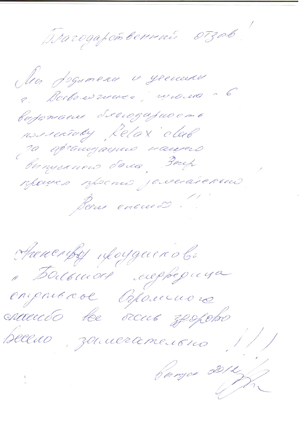 Благодарственный отзыв!
Мы родители и ученики
выражаем благодарность
коллективу Relax club
за организацию нашего
выпускного бала.
прошел просто замечательно
Вам спасибо!!!
Агентству праздников
"Большая медведица
огромное
спасибо все очень здорово
весело замечательно!!!
Выпуск 2012